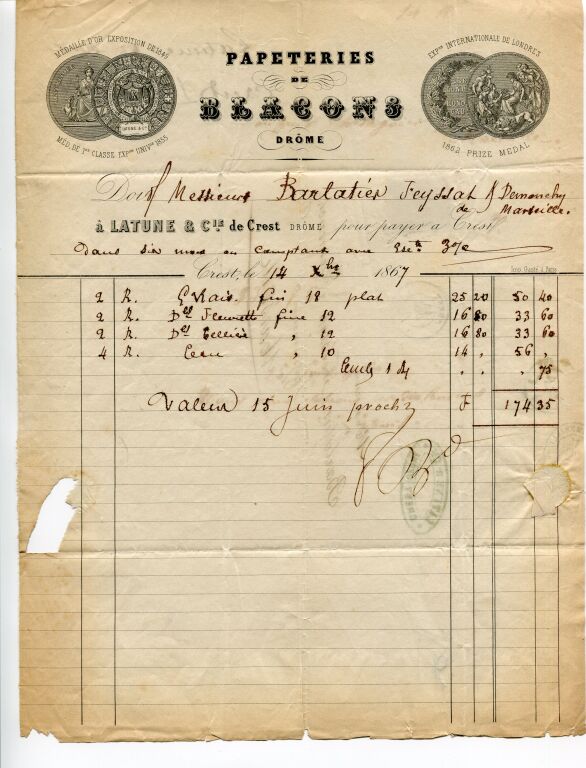 MÉDAILLE D'OR EXPOSITION DE 1849
MÉD. DE 1re CLASSE EXPon UNIVlle 1855
PAPETERIES
DE
BLACONS
DRÔME
EXPon INTERNATIONALE DE LONDRES
1862 PRIZE MEDAL
Doit Messieurs Barlatier Feyssat & Demonchy
de Marseille.
à LATUNE & Cie de Crest DRÔME pour payer à Crest
Dans six mois ou comptant avec Escte 3%
Crest, le 14 Xbre 1867
2 R. fin 18 plat 25 20 50 40
2 R. Des Fleurette fine 12 16 80 33 60
2 R. Des Tellière " 12 16 80 33 60
4 R. Ecu " 10 14 " 56 "
" " " 75
Valeur 15 Juin prochn F 174 35